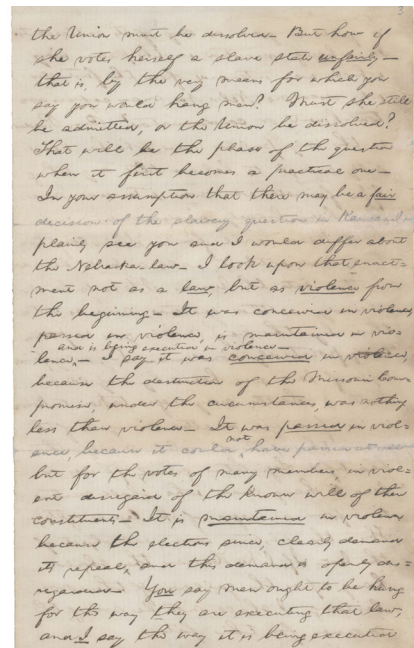 3
the Union must be dissolved. But how if
she votes herself a slave state unfairly—
that is, by the very means for which you
say you would hang men? Must she still
be admitted, or the Union be dissolved?
That will be the phase of the question
when it first becomes a practical one—
In your assumption that there may be a fair
decision of the slavery question in Kansas, I
plainly see you and I would differ about
the Nebraska-law— I look upon that enact=
ment not as a law, but as violence from
the beginning— It was conceived in violence,
passed in violence, is maintained in vio=
and is being executed in violence—
lence,— I say it was conceived in violence,
because the destruction of the Missouri Com=
promise, under the circumstances, was nothing
less than violence— It was passed in viol=
not
ence, because it could have passed at all
but for the votes of many members, in viol=
ent disregard of the known will of their
constituents— It is maintained in violence
because the elections since, clearly demand
its repeal, and this demand is openly dis=
regarded— You say men ought to be hung
for the way they are executing that law;
and I say the way it is being executed